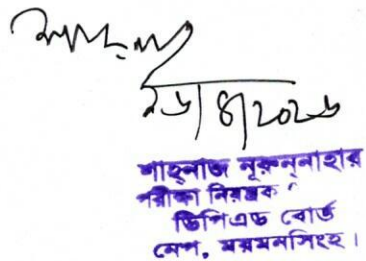 ২৬/৪/২০২৬
শাহ্‌নাজ নূরুন্‌নাহার
পরীক্ষা নিয়ন্ত্রক
ডিপিএড বোর্ড
নেপ, ময়মনসিংহ।